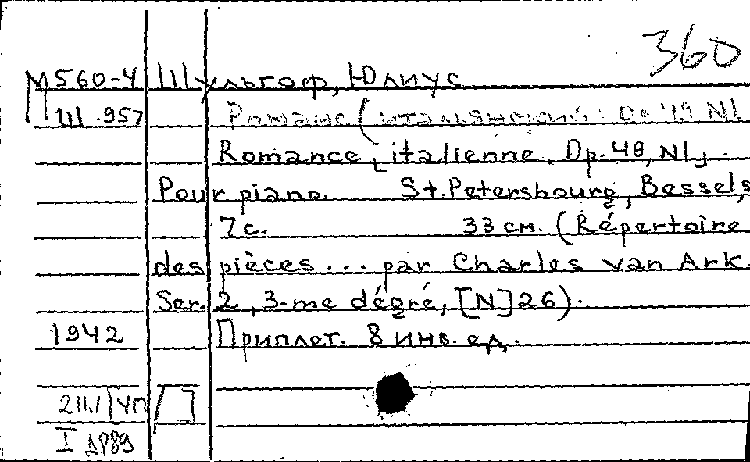 360
М560-4 Шульгоф, Юлиус
Ш 957 Романс (итальянский. Op. 48 N1
Romance italienne. Op. 48, N1.
Pour piano. St. Petersbourg, Bessel s,
7 с. 33 см. (Répertoire
des pièces ... par Charles van Ark.
Ser. 2, 3-me dégré, [N] 26).
1942 Приплет. 8 инв. ед.